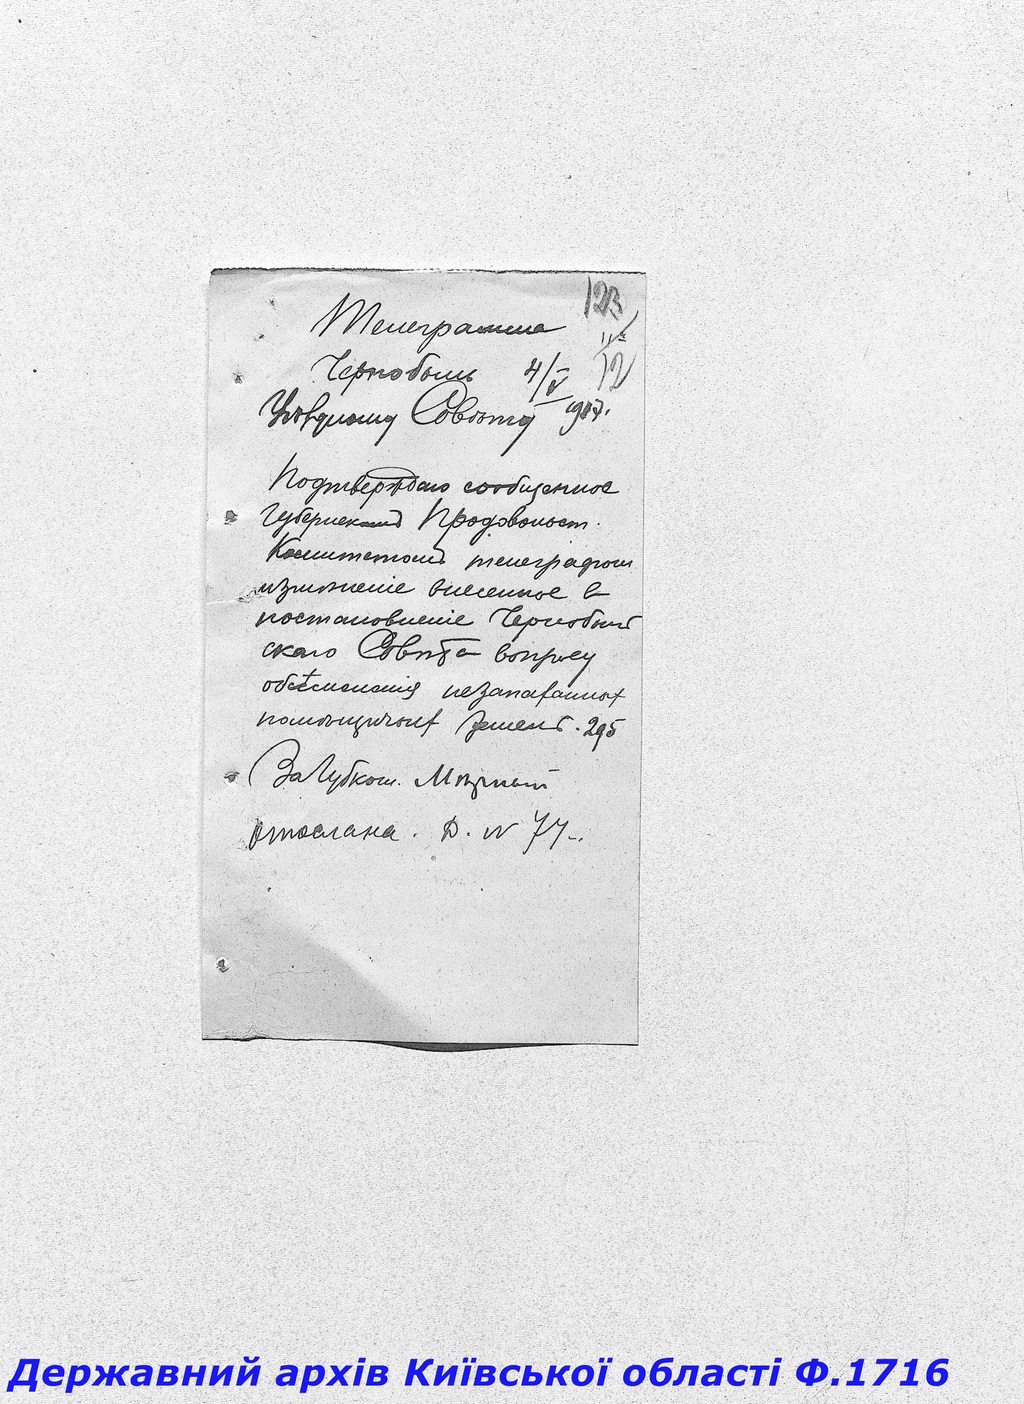 123
Телеграмма
12
Чернобыль 4/V
Уѣздному Совѣту 1917.
Подтверждаю сообщенное
Губернскимъ Продовольст.
Комитетомъ телеграфом
измѣненіе внесенное в
постановленіе Чернобыль
скаго Совѣта вопросу
обсѣмененія незапаханных
помѣщичьих земель. 295
За Губком.
Отослана. Д. № 77.
Державний архів Київської області Ф.1716